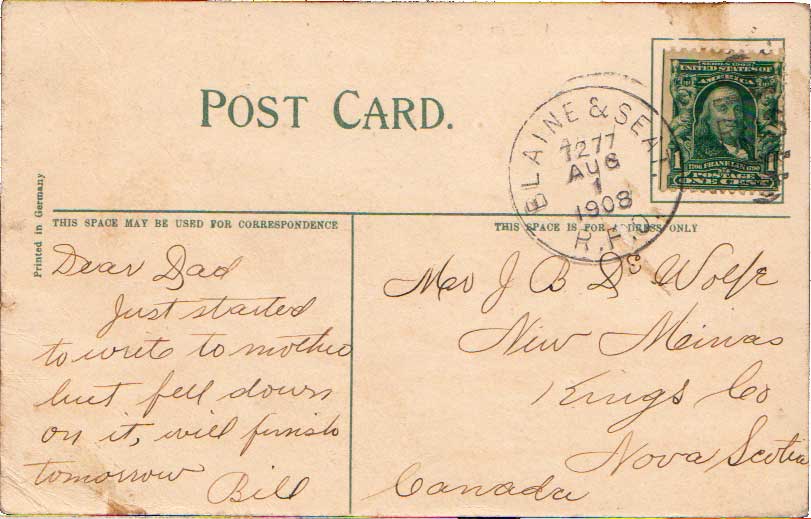 POST CARD.
SERIES 1902
UNITED STATES OF
AMERICA
1
1706 FRANKLIN 1790
POSTAGE
ONE CENT
BLAINE & SEAT.
T277
AUG
1
1908
R.P.O.
Printed in Germany
THIS SPACE MAY BE USED FOR CORRESPONDENCE
THIS SPACE IS FOR ADDRESS ONLY
Dear Dad
Just started
to write to mother
but fell down
on it, will finish
tomorrow
Bill
J B D Wolfe
New Minas
Kings Co
Nova Scotia
Canada